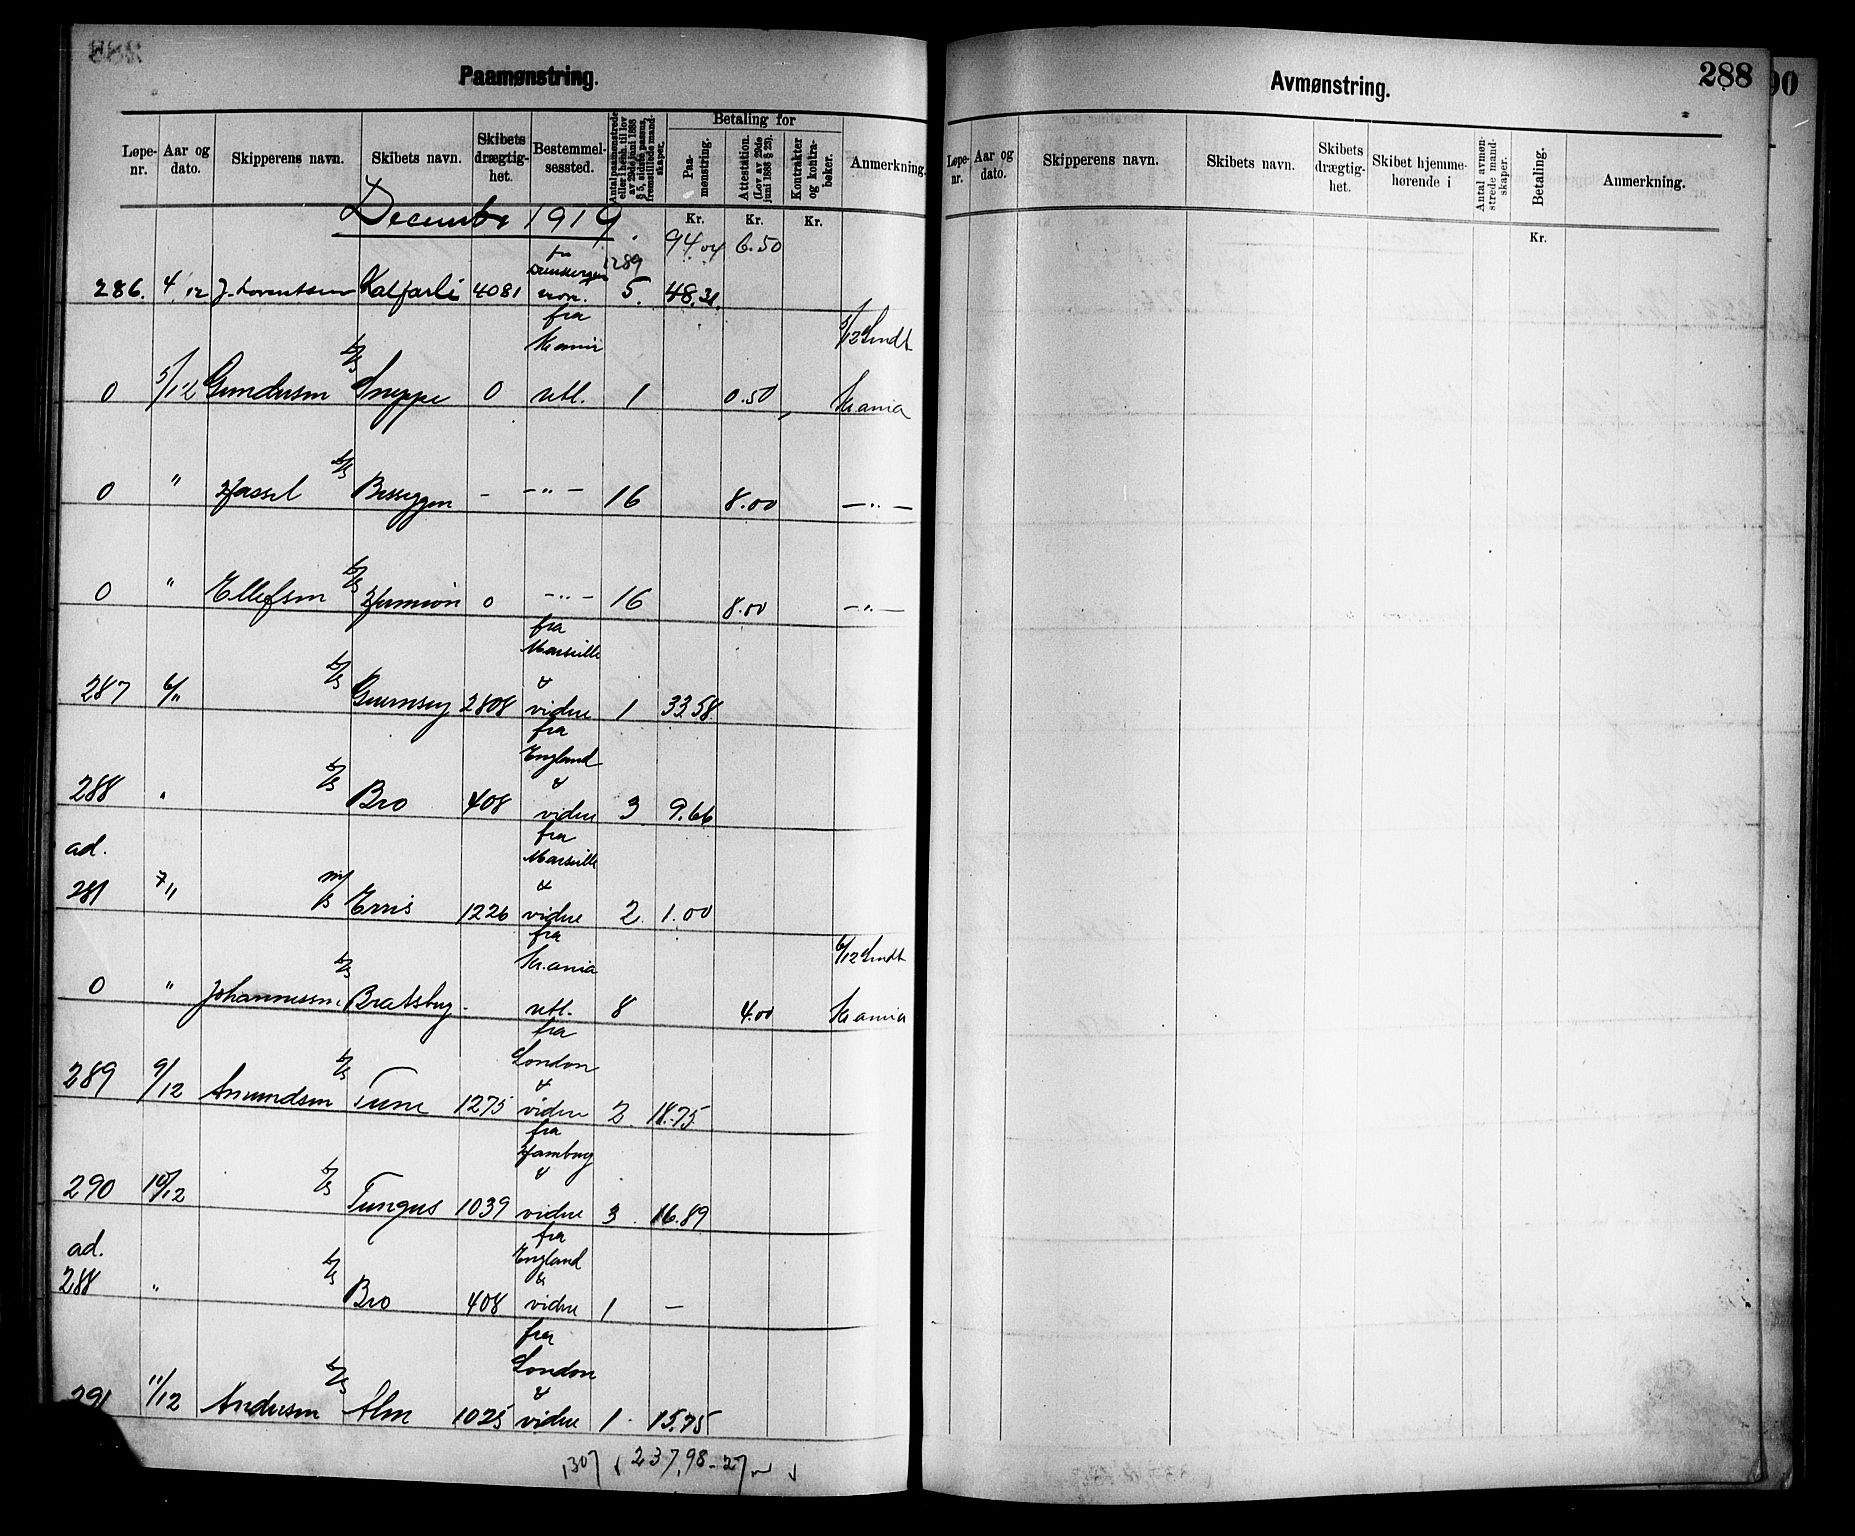 Paamønstring.
Løpe-nr. Aar og dato. Skipperens navn. Skibets navn. Skibets drægtig-het. Bestemmel-sessted. Antal paamønstrede eller i henh. til lov av 29de juni 1888 § 5, sidste passus, fremstillede mand-skaper. Betaling for Paa-mønstring. Attestation. (Lov av 29de juni 1888 § 23). Kontrakter og kontra-bøker. Anmerkning.
December 1919.
Kr. Kr. Kr.
1289 94.04 6.50
286. 4/12 J. Lorentsen Kalfarli 4081 5. 48.31.
fra
Kr.ania 5/12 Sendt
0 5/12 Gundersen D/S Sneppe 0 utl. 1 0.50 Kr.ania
0 " Hassel D/S Besseggen - -"- 16 8.00 -"-
0 " Ellefsen D/S 0 -"- 16 8.00 -"-
fra
Marseille
&
287 6/" D/S Guernsey 2808 videre 1 33.58
fra
England
&
288 " D/S Bro 408 videre 3 9.66
ad. fra
Marseille
&
281 7/" M/S Erris 1226 videre 2 1.00
fra
Kr.ania 6/12 Sendt
0 " Johannessen D/S Bratsberg - utl. 8 4.00 Kr.ania
fra
London
&
289 9/12 Amundsen D/S Tune 1275 videre 2 18.75
fra
Hamburg
&
290 10/12 D/S Tungus 1039 videre 3 16.89
ad. fra
England
&
288 " D/S Bro 408 videre 1 -
fra
London
&
291 11/12 Andersen D/S Alm 1025 videre 1 15.75
1307 237,98 - 27
Avmønstring.
288
90
Løpe-nr. Aar og dato. Skipperens navn. Skibets navn. Skibets drægtig-het. Skibet hjemme-hørende i Antal avmøn-strede mand-skaper. Betaling. Anmerkning.
Kr.